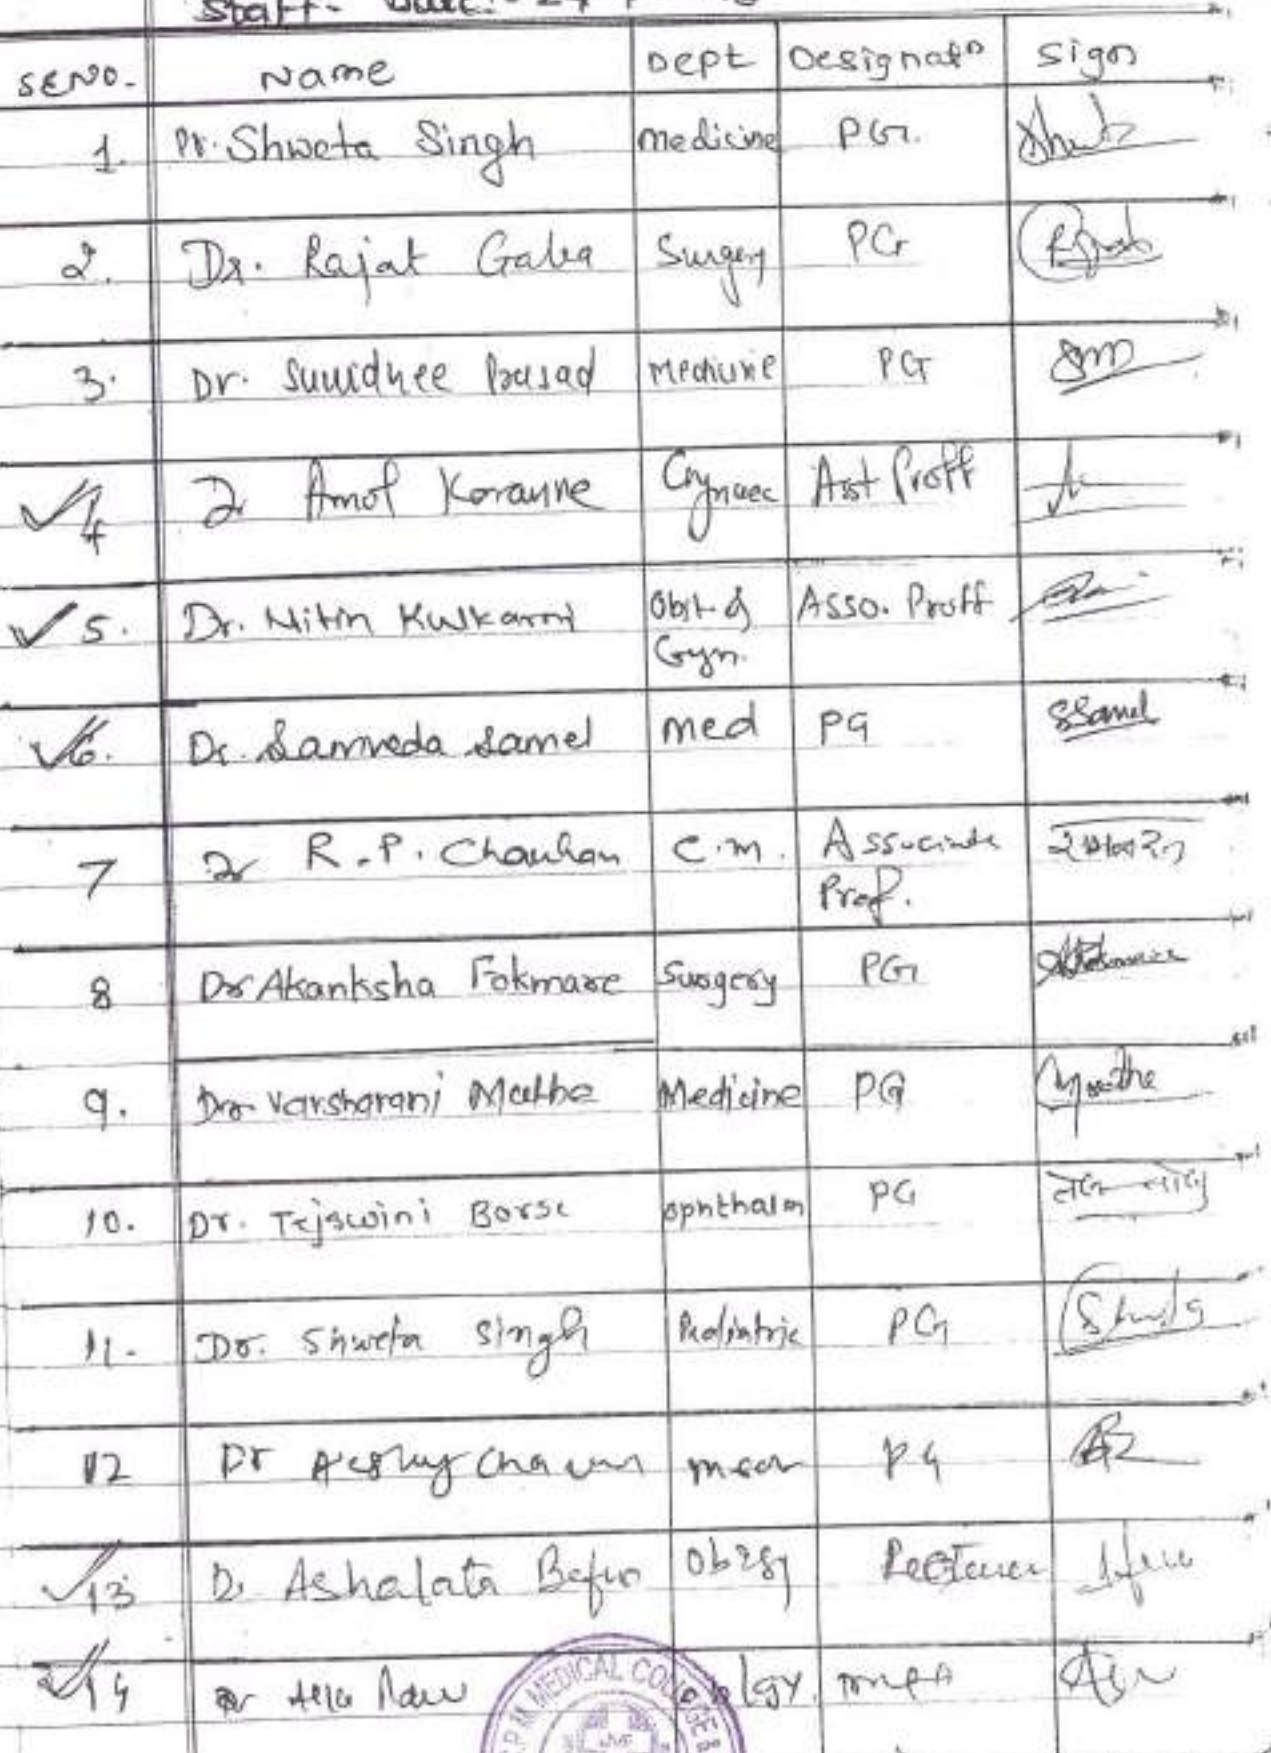 Staff- Date:- 24
SRNO. Name Dept Designatn Sign
1. Dr. Shweta Singh medicine PG.
2. Dr. Rajat Gaba Surgery PG
3. Dr. Suvidhee Prasad Medicine PG
4 Dr Amol Koraune Gynaec Asst Proff
5. Dr. Nitin Kulkarni Obst &
Gyn. Asso. Proff
6. Dr. Samveda Samel med PG SSamel
7 Dr R.P. Chauhan C.M. Associate
Prof.
8 Dr Akanksha Fokmare Surgery PG
9. Dr Varsharani Mathe Medicine PG
10. Dr. Tejswini Borse ophthalm PG
11. Dr. Shweta Singh Pediatric PG
12 Dr Akshay Chavan PG
13 Dr Ashalata Bafna ObGy Lecturer
14 Dr
MEDICAL COLLEGE